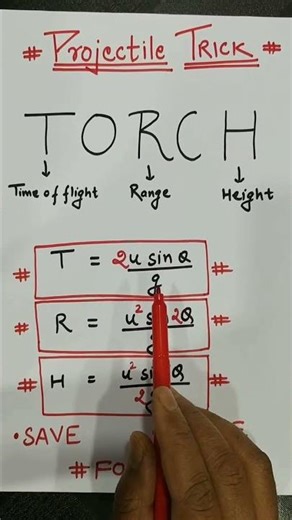 # Projectile TRICK #
TORCH
Time of flight Range Height
# T = 2u sin Q / g #
# R = u² 2Q #
# H = u² sin Q / 2 #
• SAVE
# FO